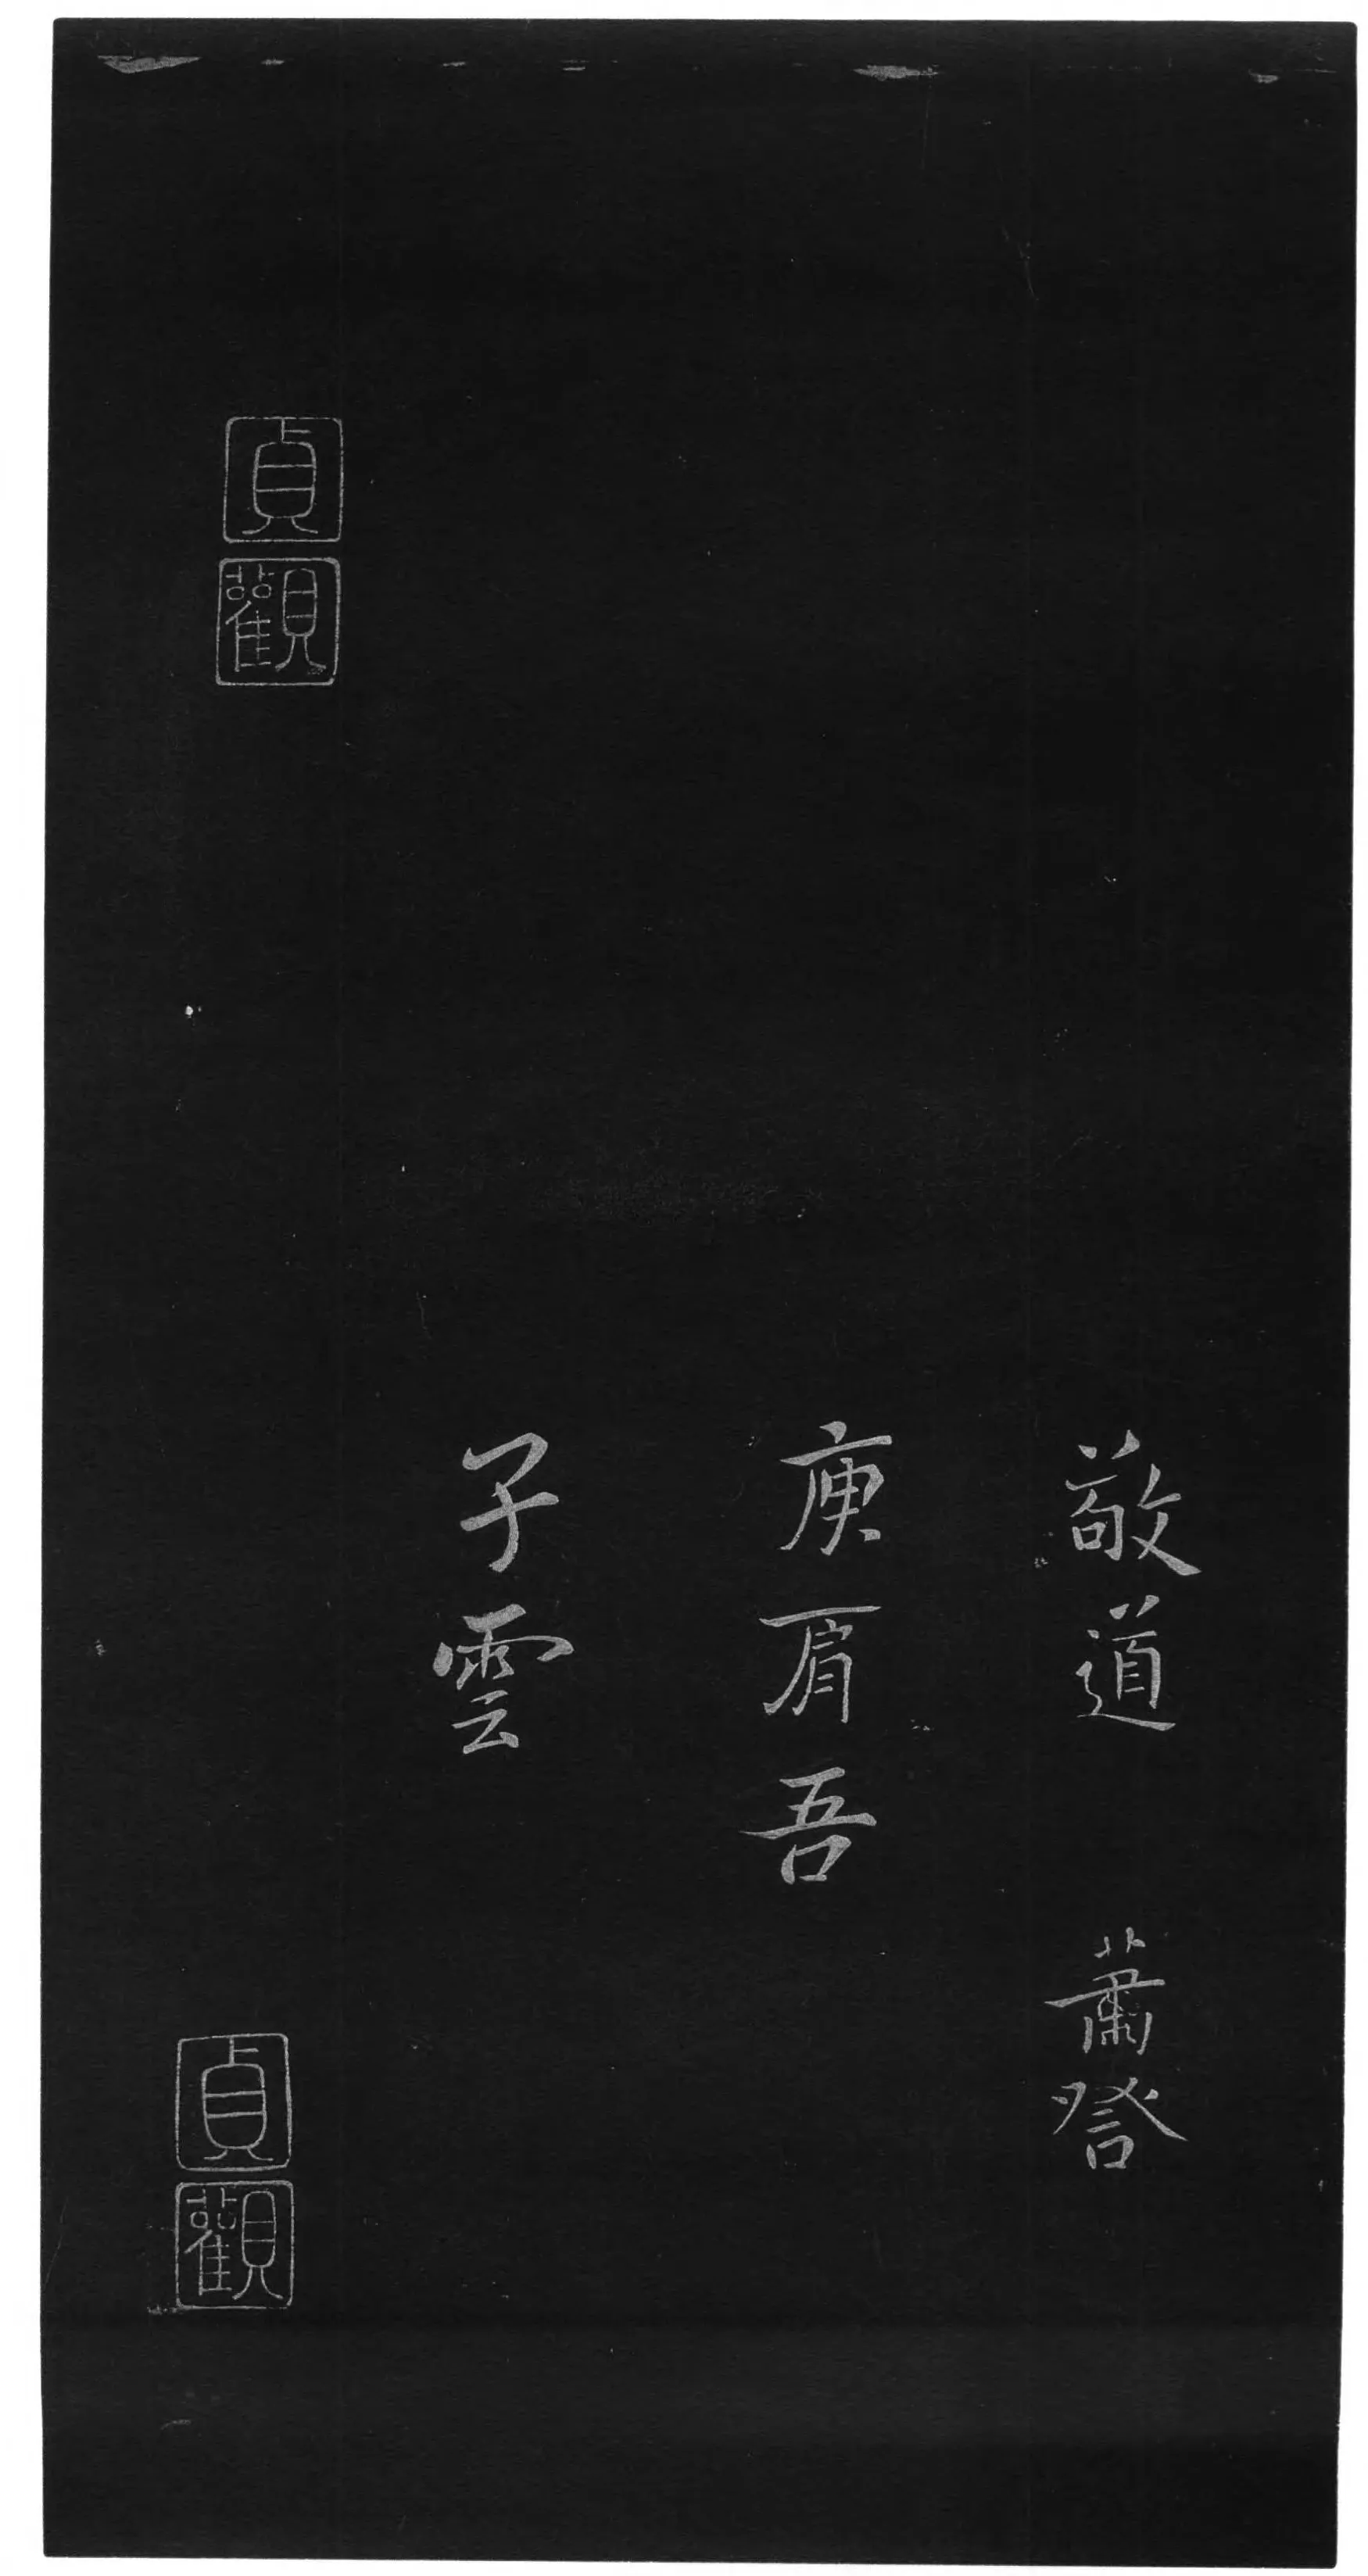 敬道 蕭詧
庾肩吾
子雲
貞觀
貞觀